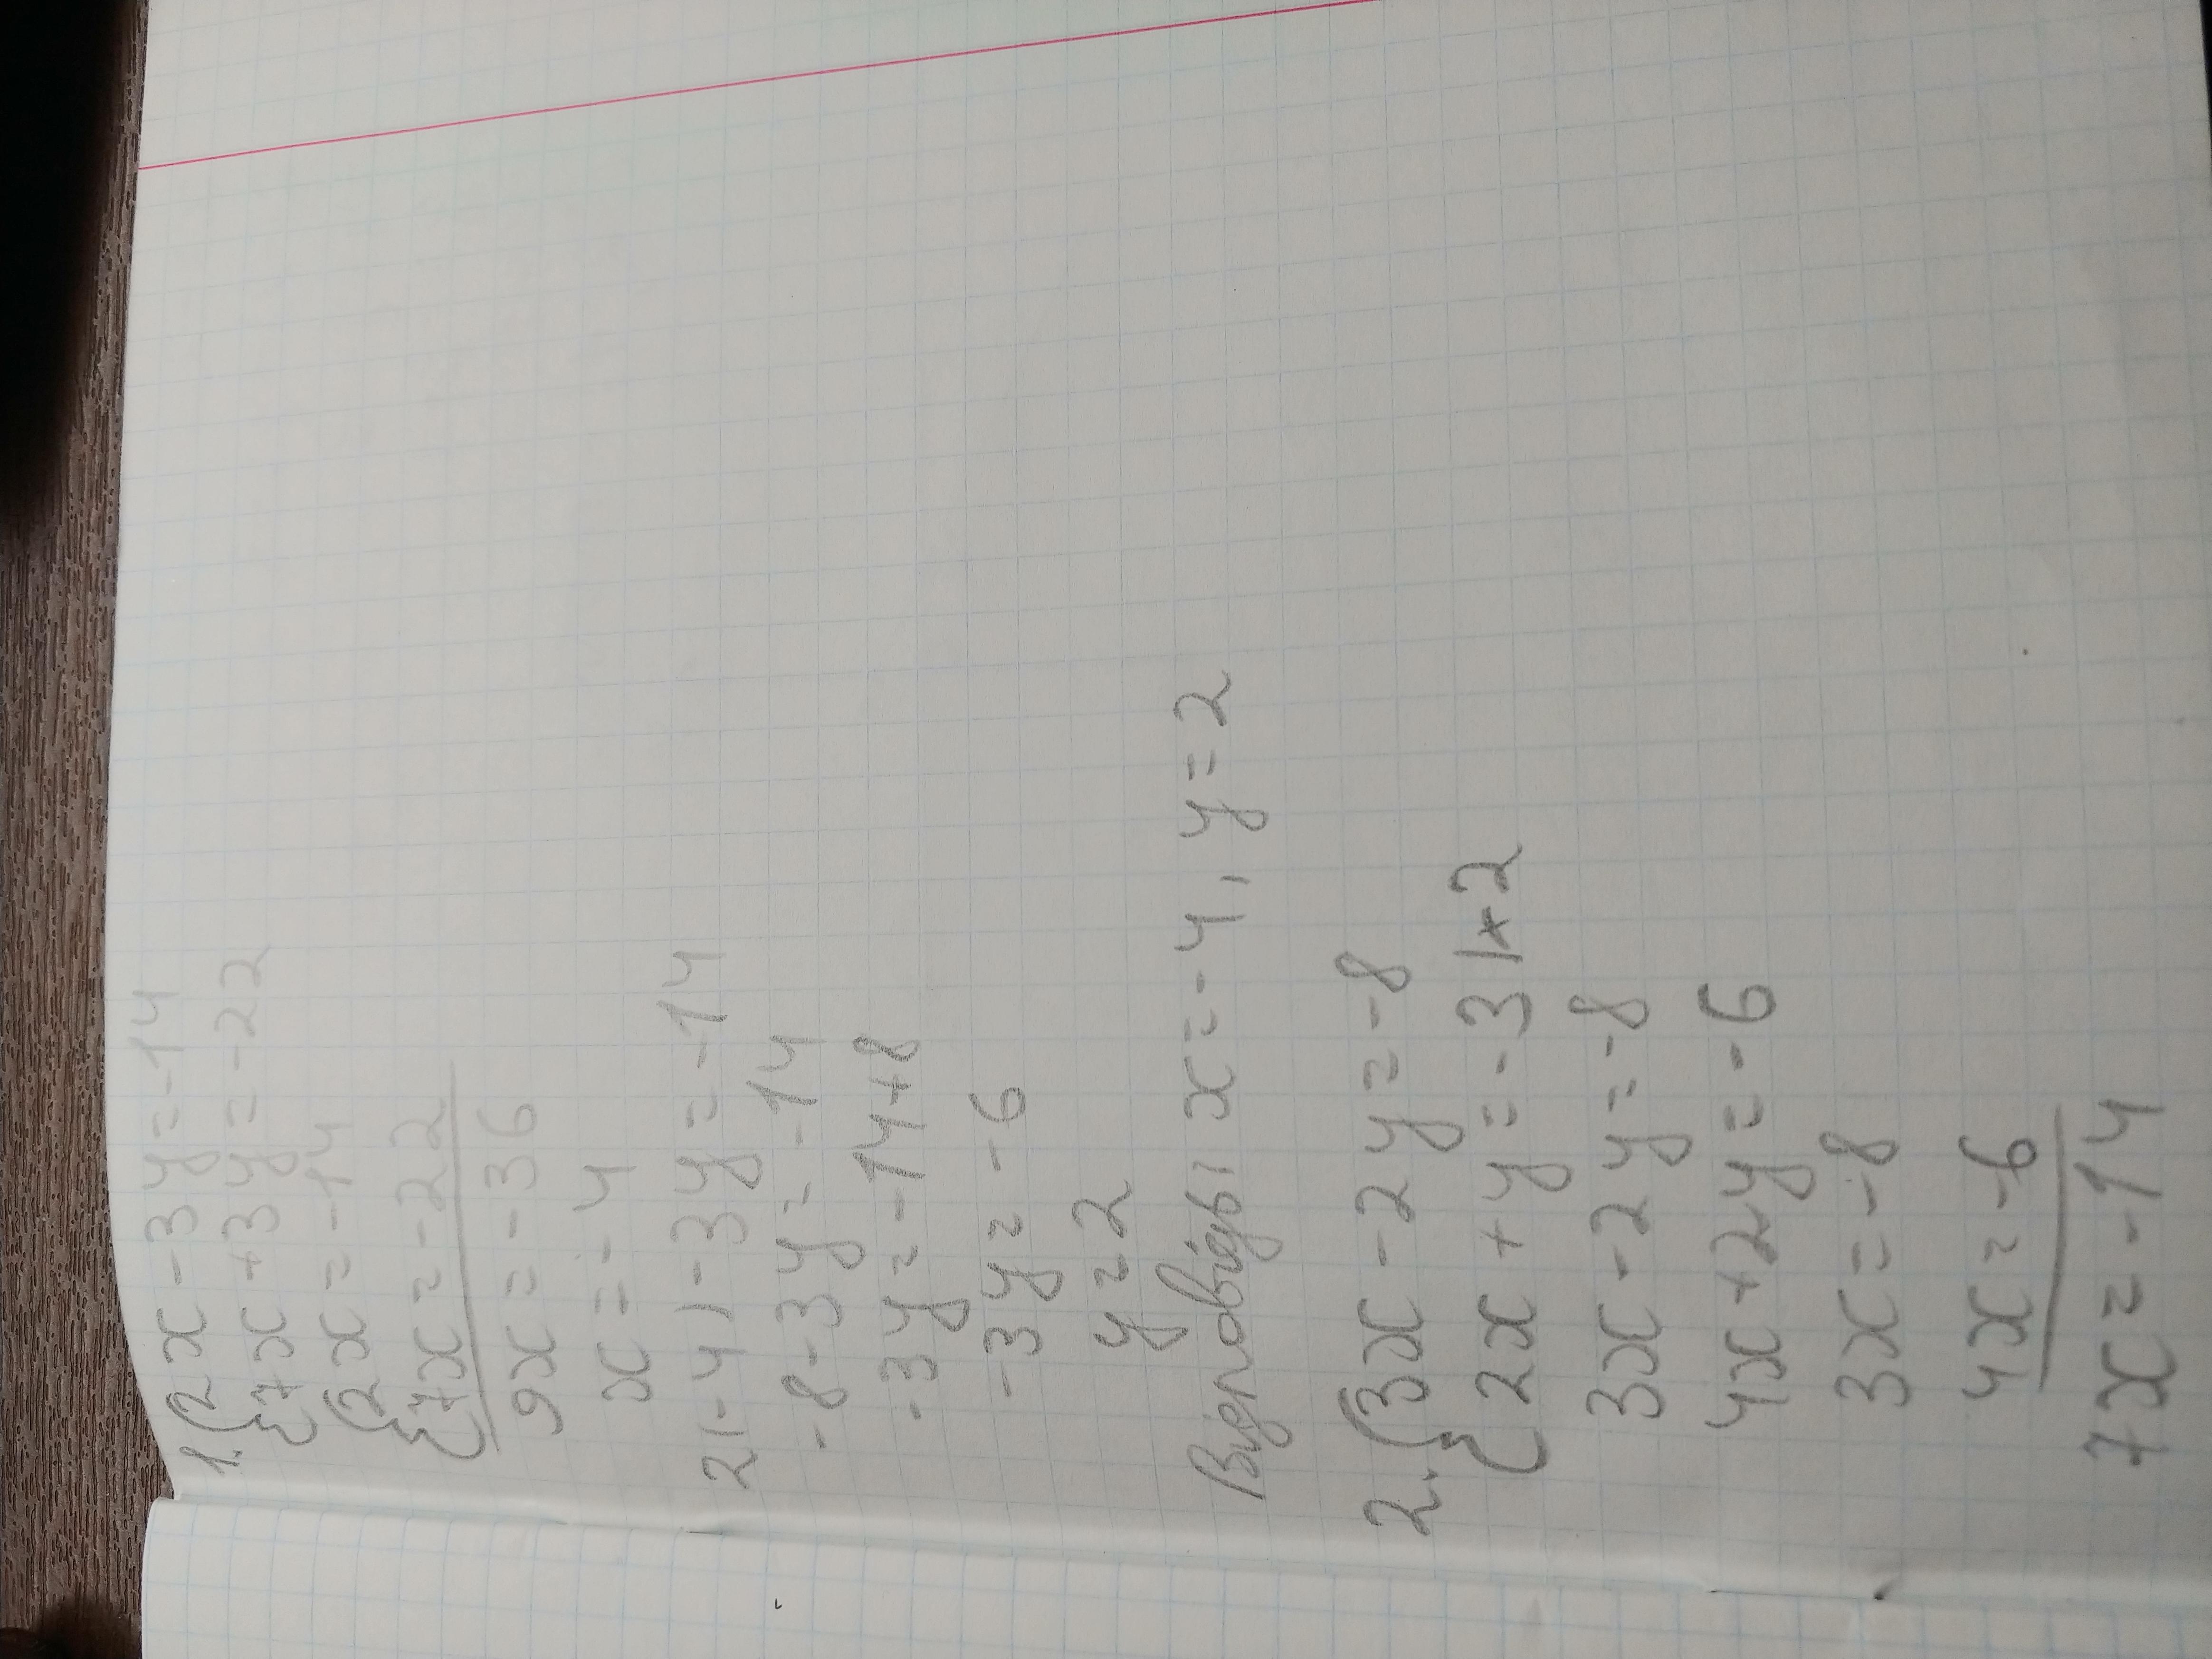 1. { 2x - 3y = -14
{ 7x + 3y = -22
{ 2x = -14
{ 7x = -22
9x = -36
x = -4
2(-4) - 3y = -14
-8 - 3y = -14
-3y = -14 + 8
-3y = -6
y = 2
Відповідь: x = -4, y = 2
2. { 3x - 2y = -8
{ 2x + y = -3 | * 2
3x - 2y = -8
4x + 2y = -6
3x = -8
4x = -6
7x = -14